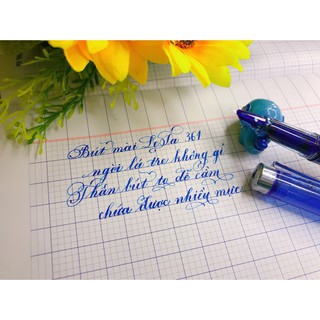 Bút mài Lệ Sa 361
ngòi lá tre không gỉ
Thân bút to dễ cầm
chứa được nhiều mực